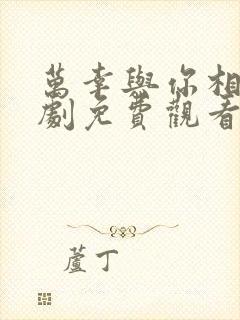 萬幸與你相
劇免費觀看
蘆丁